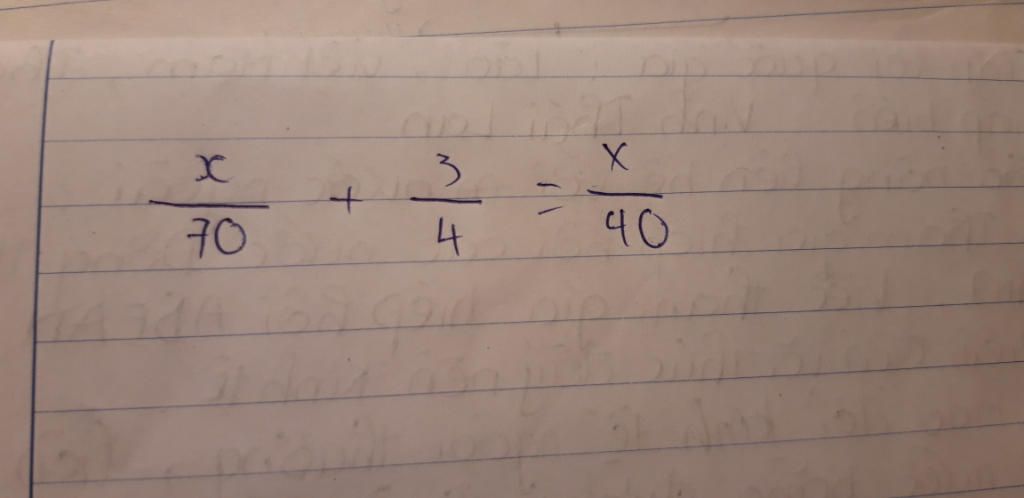 x/70 + 3/4 = x/40